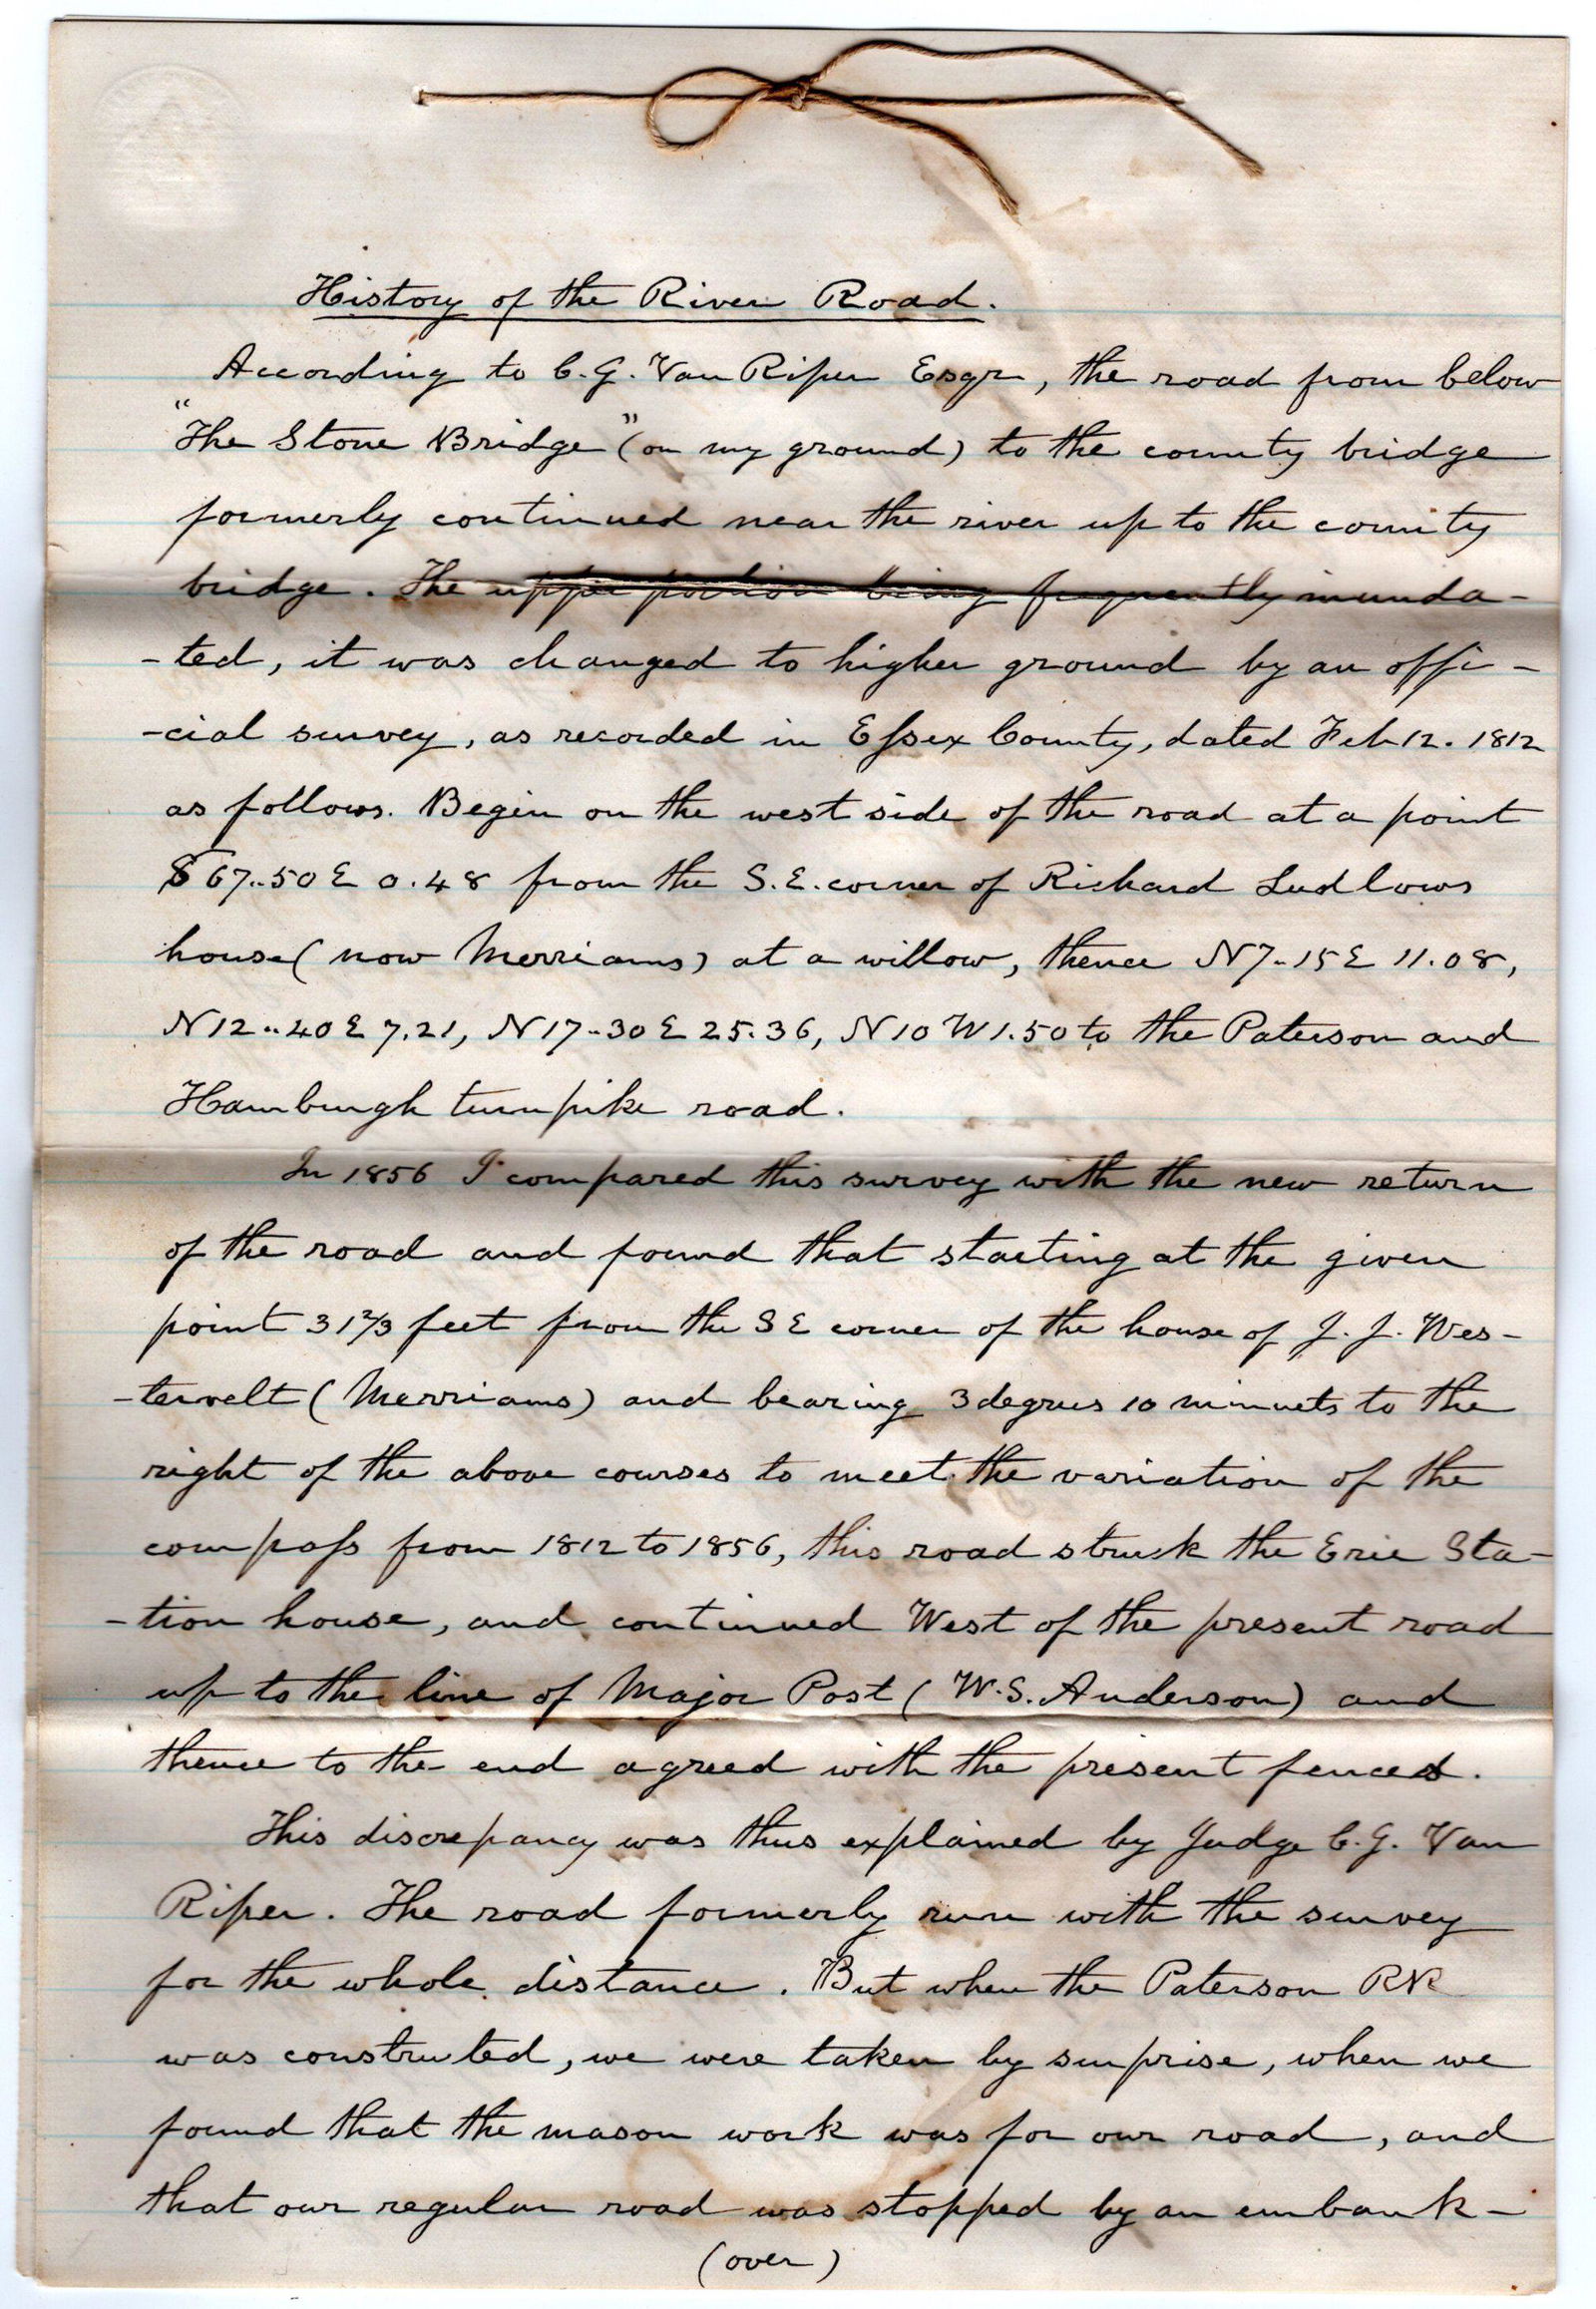 History of the River Road.
According to C. G. Van Riper Esqr, the road from below
"The Stone Bridge" (on my ground) to the county bridge
formerly continued near the river up to the county
bridge. The upper portion being frequently inunda-
-ted, it was changed to higher ground by an offi-
-cial survey, as recorded in Essex County, dated Feb 12. 1812
as follows. Begin on the west side of the road at a point
S 67..50 E 0.48 from the S.E. corner of Richard Ludlows
house (now Merriams) at a willow, thence N 7..15 E 11.08,
N 12..40 E 7.21, N 17..30 E 25.36, N 10 W 1.50 to the Paterson and
Hamburgh turnpike road.
In 1856 I compared this survey with the new return
of the road and found that starting at the given
point 31 2/3 feet from the S E corner of the house of J. J. Wes-
-tervelt (Merriams) and bearing 3 degrees 10 minuets to the
right of the above courses to meet the variation of the
compass from 1812 to 1856, this road struck the Erie Sta-
-tion house, and continued West of the present road
up to the line of Major Post (W. S. Anderson) and
thence to the end agreed with the present fences.
This discrepancy was thus explained by Judge C. G. Van
Riper. The road formerly run with the survey
for the whole distance. But when the Paterson RR
was constructed, we were taken by surprise, when we
found that the mason work was for our road, and
that our regular road was stopped by an embank-
(over)